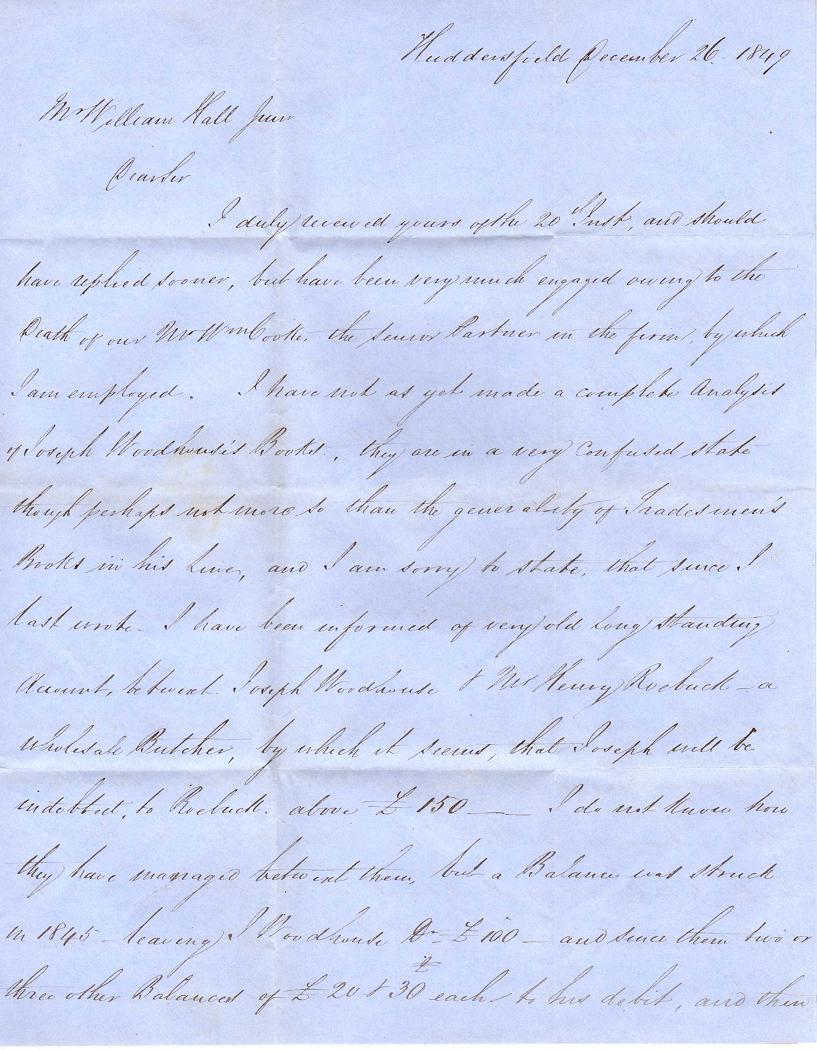 Huddersfield December 26. 1849
Mr William Hall Junr
Dear Sir
I duly received yours of the 20th Inst, and should
have replied sooner, but have been very much engaged owing to the
Death of our Mr Wm Cooke, the senior Partner in the firm, by which
I am employed. I have not as yet made a complete Analysis
of Joseph Woodhouse's Books, they are in a very confused state
though perhaps not more so than the generality of Tradesmen's
Books in his Line, and I am sorry to state, that since I
last wrote I have been informed of very old long standing
Account, betwixt Joseph Woodhouse & Mr Henry Roebuck - a
wholesale Butcher, by which it seems, that Joseph will be
indebted, to Roebuck. above £150 — I do not know how
they have managed betwixt them, but a Balance was struck
in 1845 - leaving J Woodhouse Dr £100 - and since them two or
three other Balances of £20 & £30 each - to his debit, and then